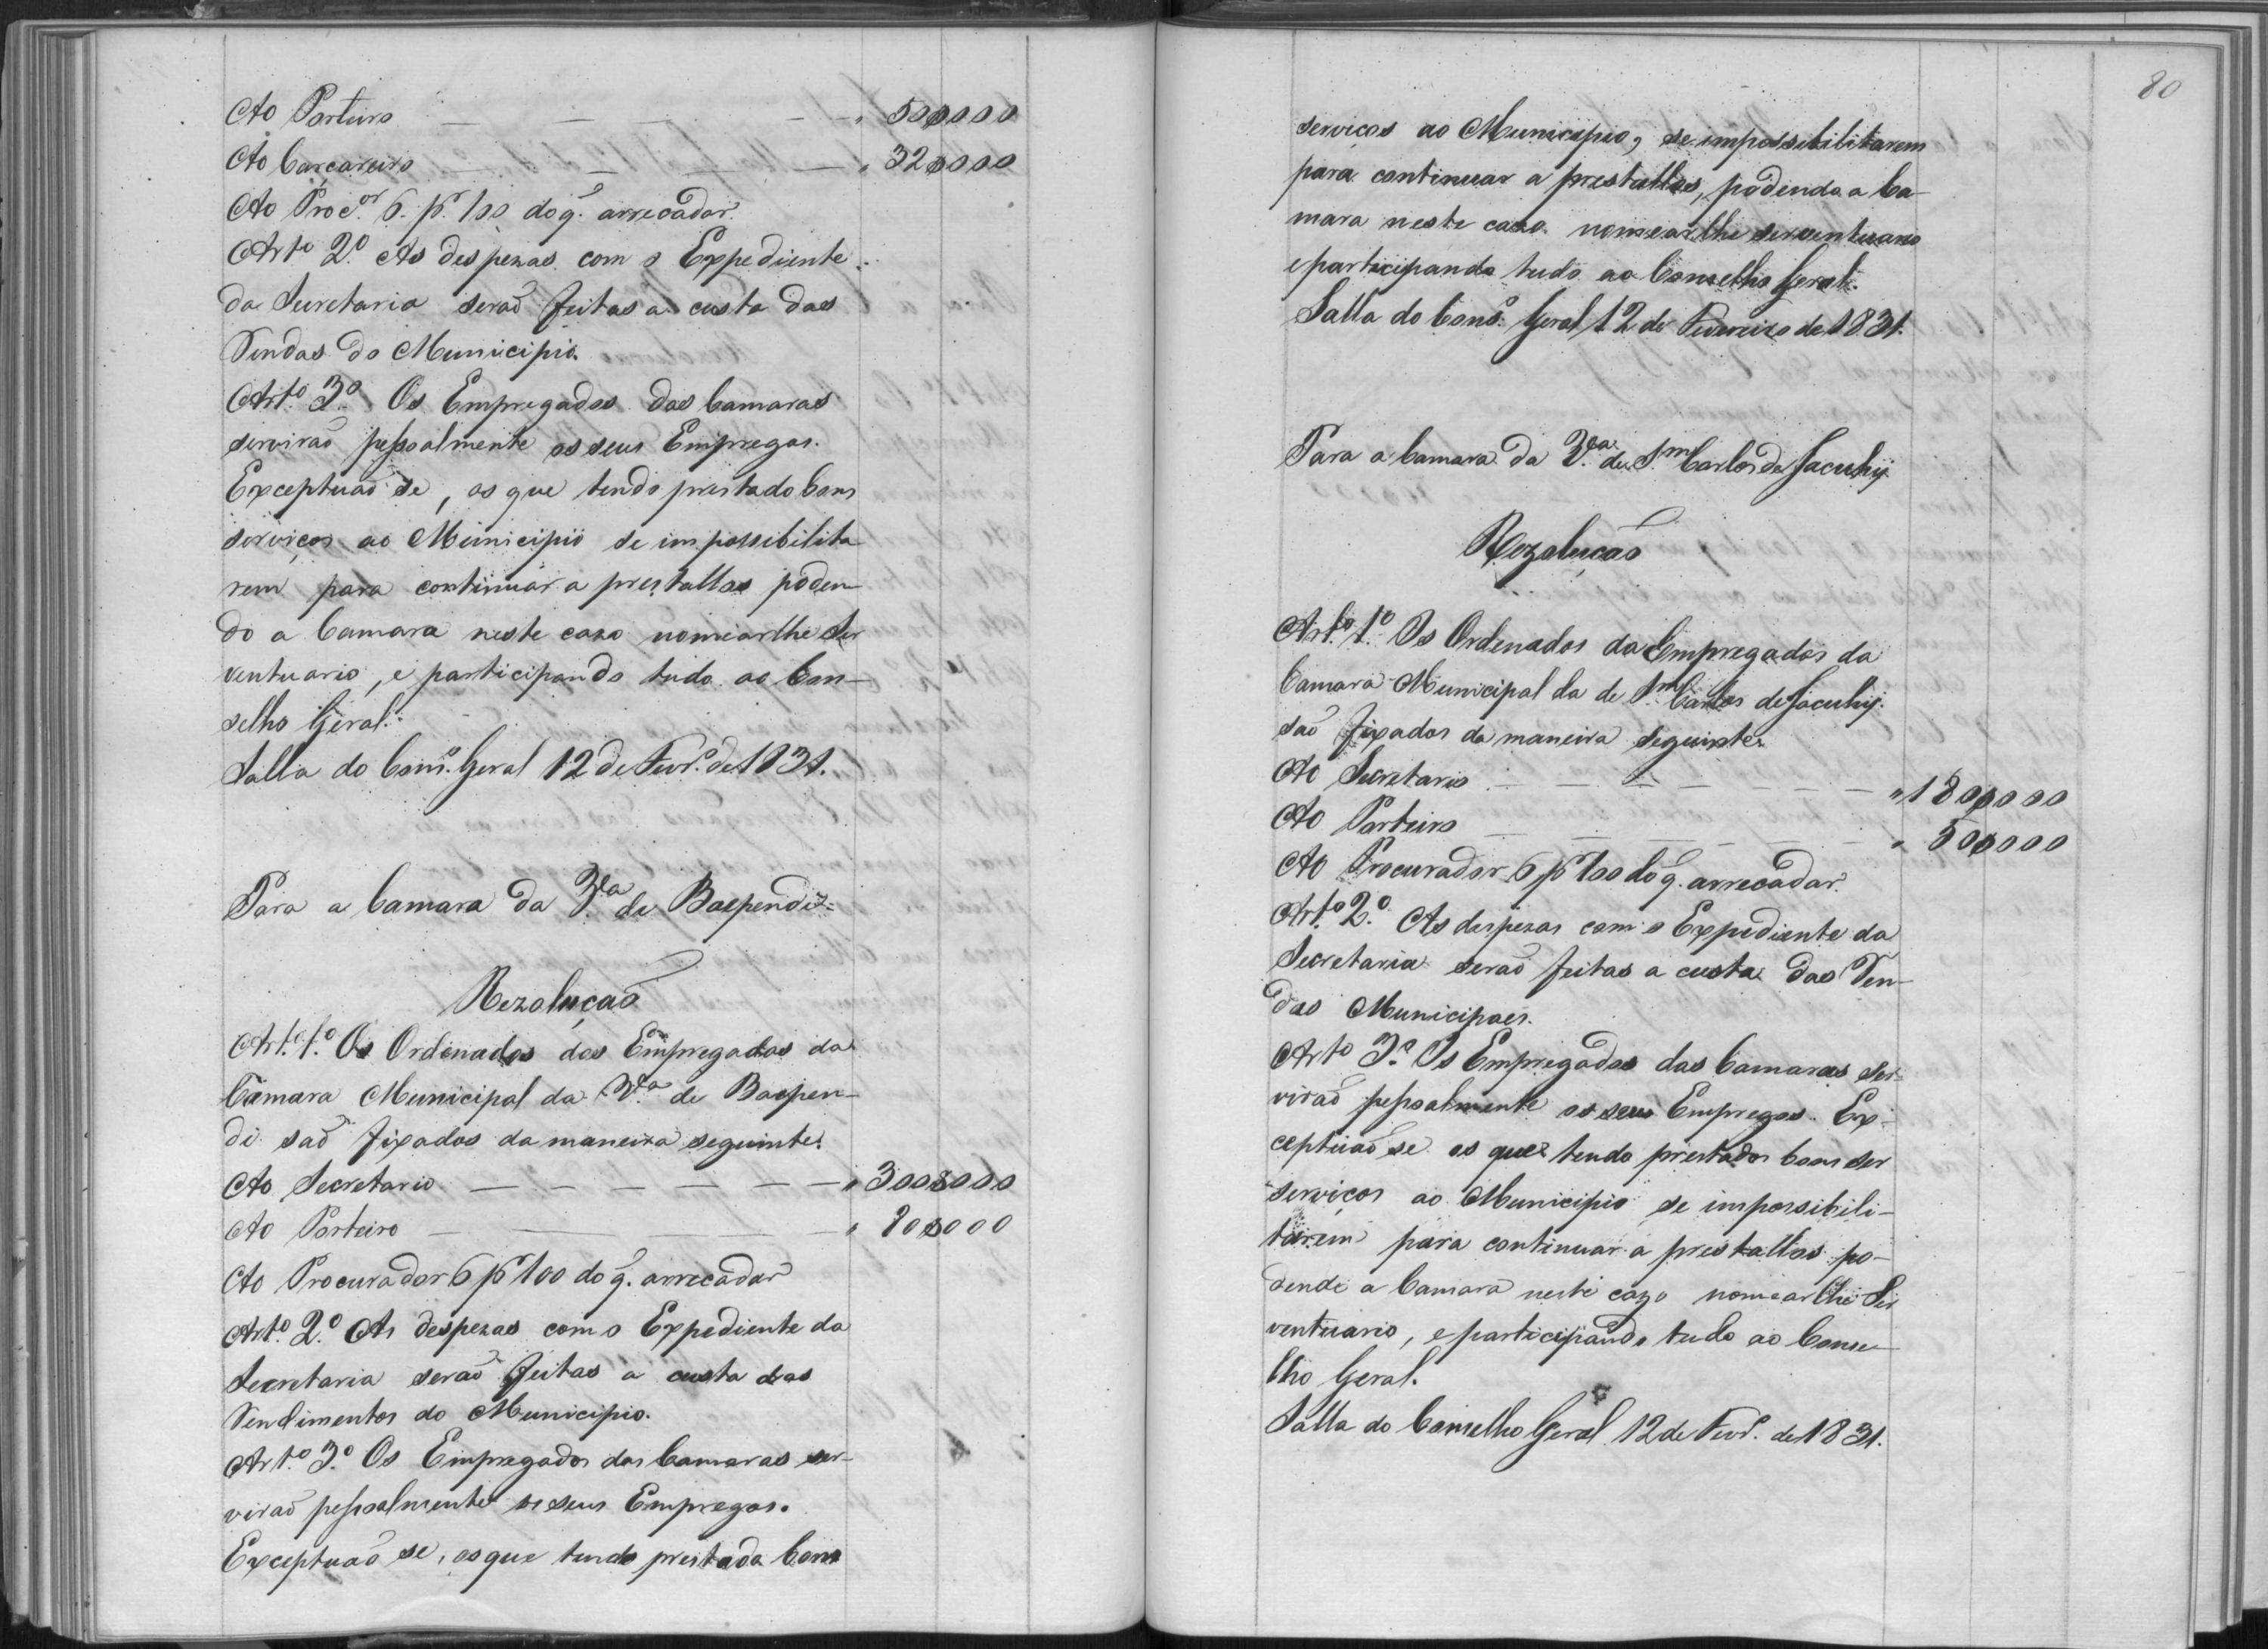 Ao Porteiro — — — " 50$000
Ao Carcareiro — — — " 32$000
Ao Proc.or 6. p.r 100 do q̃. arrecadar.
Art.o 2.o As despezas com o Expediente
da Secretaria seraõ feitas a custa das
Rendas do Municipio.
Art.o 3.o Os Empregados das Camaras
serviraõ pessoalmente os seus Empregos.
Exceptuaõ se, os que tendo prestado bons
serviços ao Municipio se impossibilita
rem para continuar a prestallos poden
do a Camara neste cazo nomiarlhe Ser
ventuario, e participando tudo ao Con-
selho Geral.
Salla do Cons.o Geral 12 de Fevr.o de 1831.
Para a Camara da V.la de Baependi=
Rezoluçaõ
Art.o 1.o Os Ordenados dos Empregados da
Camara Municipal da V.la de Baepen-
di saõ fixados da maneira seguinte.
Ao Secretario — — — — — — " 300$000
Ao Porteiro — — — — " 80$000
Ao Procurador 6 p.r 100 do q̃. arrecadar
Art.o 2.o As despezas com o Expediente da
Secretaria seraõ feitas a custa dos
Rendimentos do Municipio.
Art.o 3.o Os Empregados das Camaras ser-
viraõ pessoalmente os seus Empregos.
Exceptuaõ se, os que tendo prestado bons
80
serviços ao Municipio, se impossibilitarem
para continuar a prestallos, podendo a Ca-
mara neste cazo nomearlhe serventuario
e participando tudo ao Conselho Geral.
Salla do Cons.o Geral 12 de Fevereiro de 1831.
Para a Camara da V.la de S.m Carlos de Jacuhy
Rezoluçaõ
Art.o 1.o Os Ordenados dos Empregados da
Camara Municipal da de S.m Carlos de Jacuhy.
saõ fixados da maneira seguinte
Ao Secretario — — — — — — " 180$000
Ao Porteiro — — — — " 50$000
Ao Procurador 6 p.r 100 do q̃. arrecadar.
Art.o 2.o As despezas com o Expediente da
Secretaria seraõ feitas a custa das Ren-
das Municipaes.
Art.o 3.o Os Empregados das Camaras ser-
viraõ pessoalmente os seus Empregos. Ex-
ceptuaõ se os que tendo prestados bons ser
serviços ao Municipio se impossibili-
tarem para continuar a prestallos po-
dendo a Camara neste cazo nomearlhe Ser
ventuario, e participando tudo ao Conse-
lho Geral.
Salla do Conselho Geral 12 de Fevr.o de 1831.